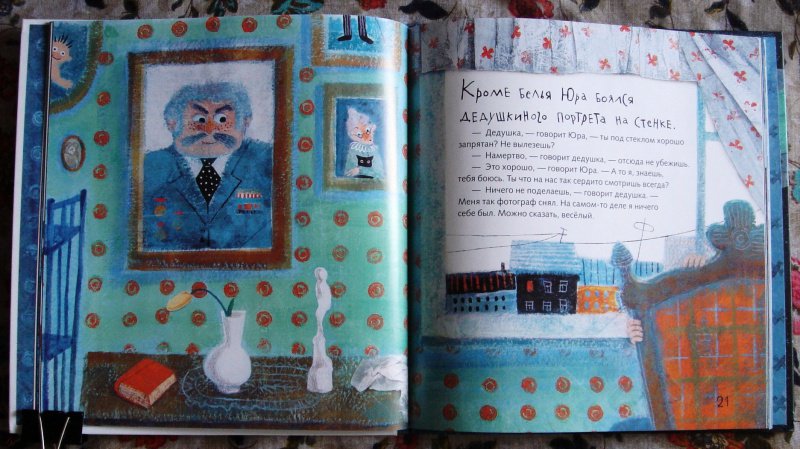 Кроме белья Юра боялся
дедушкиного портрета на стенке.
— Дедушка, — говорит Юра, — ты под стеклом хорошо
запрятан? Не вылезешь?
— Намертво, — говорит дедушка, — отсюда не убежишь.
— Это хорошо, — говорит Юра. — А то я, знаешь,
тебя боюсь. Ты что на нас так сердито смотришь всегда?
— Ничего не поделаешь, — говорит дедушка. —
Меня так фотограф снял. На самом-то деле я ничего
себе был. Можно сказать, весёлый.
21